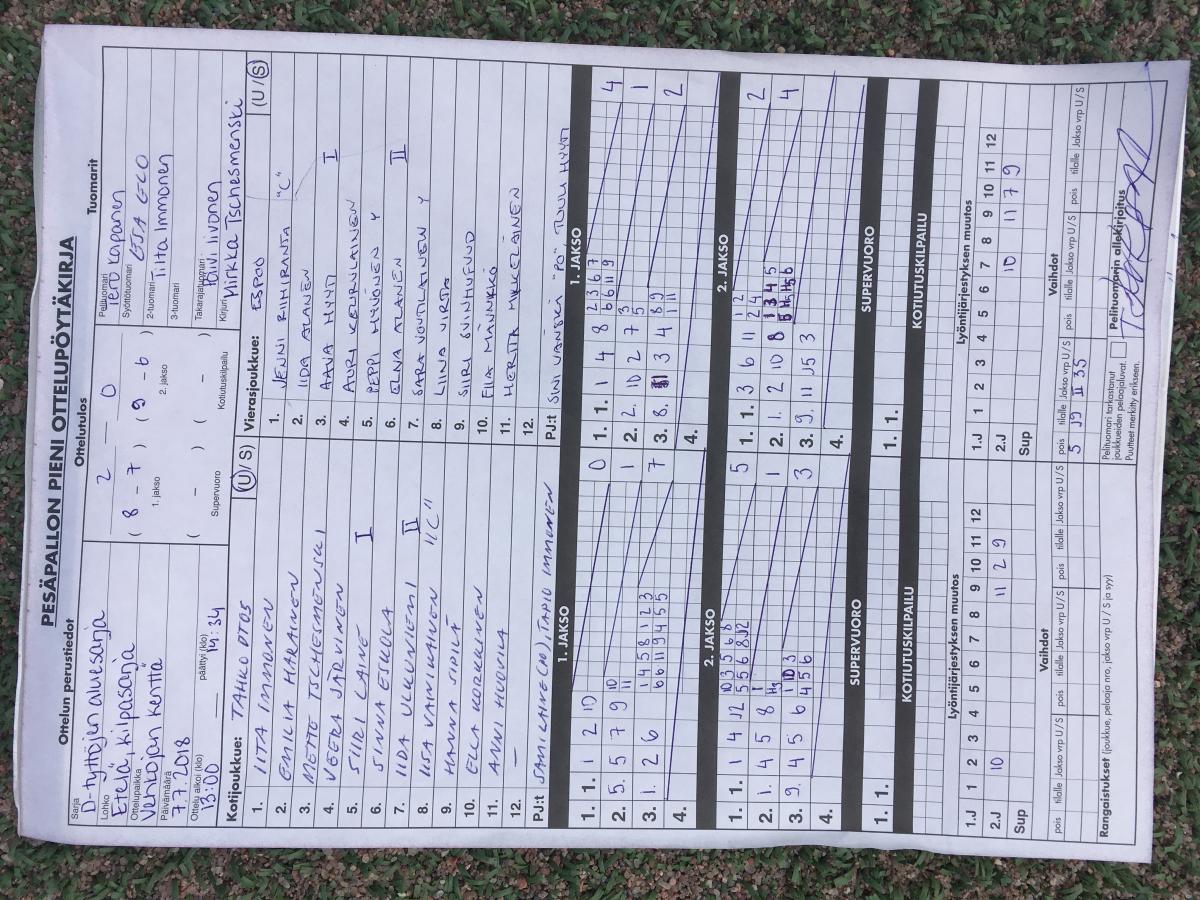 PESÄPALLON PIENI OTTELUPÖYTÄKIRJA
Ottelun perustiedot
Sarja
D-tyttöjen aluesarja
Lohko
Etelä, kilpasarja
Ottelupaikka
Venkopan kenttä
Päivämäärä
7.7.2018
Ottelu alkoi (klo) 13:00 päättyi (klo) 14:34
Ottelutulos
2 – 0
( 8 – 7 ) ( 9 – 6 )
1. jakso 2. jakso
( – ) ( – )
Supervuoro Kotiutuskilpailu
Tuomarit
Pelituomari Tero Kapanen
Syöttötuomari ESA ELO
2-tuomari Tiita Immonen
3-tuomari
Takarajatuomari Päivi Iivonen
Kirjuri Mirkka Tschesmenski
Kotijoukkue: TAHKO DT05 (U / S)
1. IITA IMMONEN
2. EMILIA HARAINEN
3. METTE TSCHEIMENSKI
4. VEERA JÄRVINEN
5. SIIRI LAINE I
6. SINNA ETKOLA
7. IIDA UKKONIEMI II
8. IISA VAMIKAINEN "C"
9. HANNA SIPILÄ
10. ELLA KORKKINEN
11. ANNI HUOVILA
12. –
PJ:t SAMI LAINE (PÖ), TAPIO IMMONEN
Vierasjoukkue: ESPOO (U / S)
1. JENNI RIIHIRANTA "C"
2. IIDA ALANEN
3. AAVA HYYTI I
4. AURI KEURULAINEN
5. PEPPI HYVÖNEN Y
6. ELNA ALANEN II
7. SARA VOUTILAINEN Y
8. LIINA VIRTA
9. SIIRI SVINHUFVUD
10. ELLA MÄNNIKKÖ
11. HERTTA MIKKELÄINEN
12.
PJ:t SUVI VÄNSKÄ "PÖ", TUULI HYYTI
1. JAKSO
1. 1. 1 2 10 0
2. 5. 5 7 9 10 11 1
3. 1. 2 6 1 4 5 8 1 2 3 7
6 6 11 9 4 5 5
4.
1. JAKSO
1. 1. 1 4 8 2 3 6 7 4
6 6 11 9
2. 2. 10 2 7 3 5 1
3. 8. 11 3 4 8 9 2
11 11
4.
2. JAKSO
1. 1. 1 4 12 10 3 5 6 8 5
5 5 6 8 12
2. 1. 4 5 8 1 H3 1
3. 9. 4 5 6 1 10 3 3
4 5 6
4.
2. JAKSO
1. 1. 3 6 11 1 2 2
2 4
2. 1. 2 10 8 1 3 4 5 4
3. 9. 11 15 3
4.
SUPERVUORO
1. 1.
SUPERVUORO
1. 1.
KOTIUTUSKILPAILU
KOTIUTUSKILPAILU
Lyöntijärjestyksen muutos
1.J 1 2 3 4 5 6 7 8 9 10 11 12
2.J 10 11 2 9
Sup
Lyöntijärjestyksen muutos
1.J 1 2 3 4 5 6 7 8 9 10 11 12
2.J 10 11 7 9
Sup
Vaihdot
pois tilalle Jakso vrp U / S pois tilalle Jakso vrp U / S pois tilalle Jakso vrp U / S
Vaihdot
pois tilalle Jakso vrp U / S pois tilalle Jakso vrp U / S pois tilalle Jakso vrp U / S
5 J9 II 3S
Rangaistukset (joukkue, pelaaja nro, jakso vrp U / S ja syy)
Pelituomari tarkastanut
joukkueiden pelaajaluvat.
Puutteet merkitty erikseen.
Pelituomarin allekirjoitus